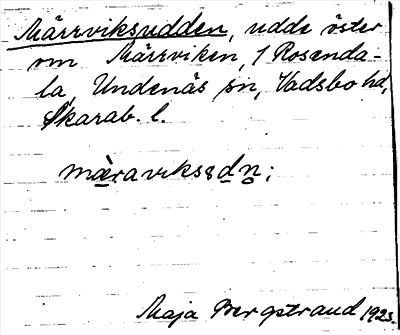 Märrviksudden, udde öster
om Märrviken, 1 Rosenda-
la, Undenäs sn, Vadsbo hd,
Skarab. l.
mæ̀raviksɷdn̥;
Maja Bergstrand 1923.